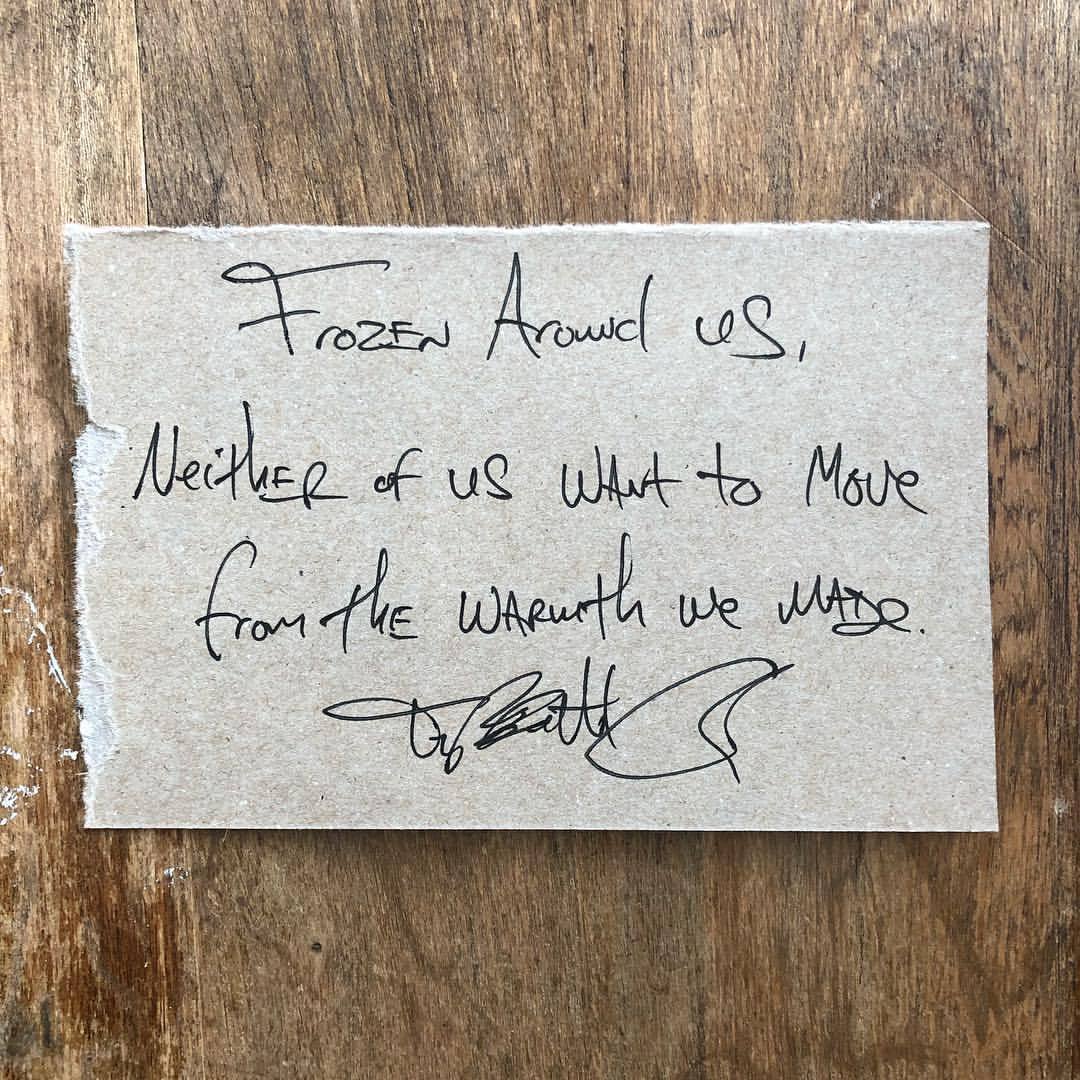 Frozen Around us,
Neither of us want to move
from the warmth we made.